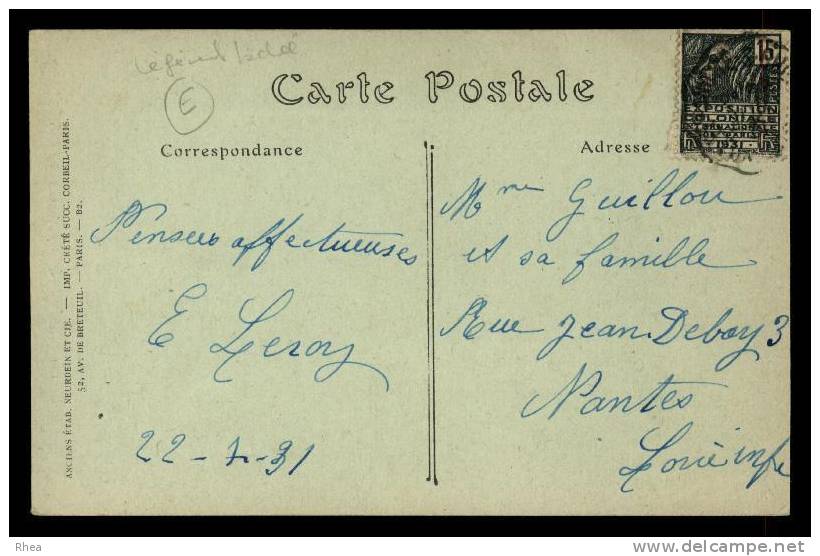 Carte Postale
Correspondance
Adresse
E
15c
POSTES
EXPOSITION
COLONIALE
INTERNATIONALE
DE PARIS
1931
Pensées affectueuses
E Leroy
22-7-31
Mme Guillou
et sa famille
Rue Jean Deboy 3
Nantes
Loire infre
ANCIENS ÉTAB. NEURDEIN ET CIE. — IMP. CRÉTÉ SUCC. CORBEIL-PARIS.
52, AV. DE BRETEUIL. — PARIS. — B2.
Rhea
www.delcampe.net